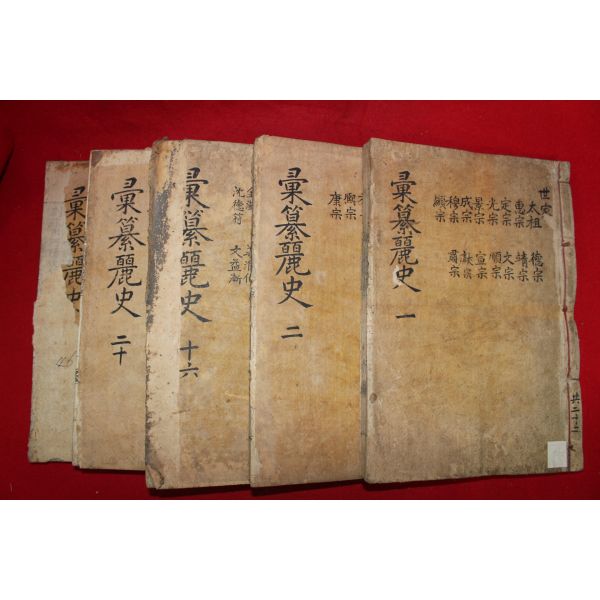 世家
太祖 德宗
惠宗 靖宗
定宗 文宗
光宗 順宗
景宗 宣宗
成宗 獻宗
穆宗 肅宗
顯宗
彙纂麗史 一
共二十二
熙宗
康宗
彙纂麗史 二
沈德符 文益漸
彙纂麗史 十六
彙纂麗史 二十
彙纂麗史